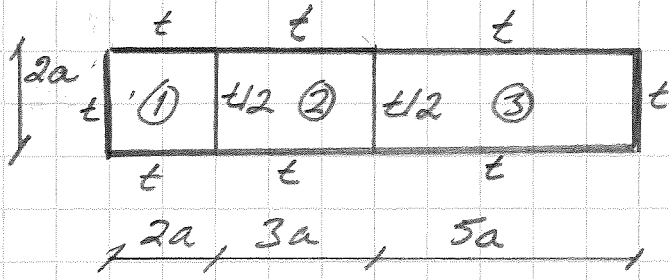 t t t
2a t ① t/2 ② t/2 ③ t
t t t
2a 3a 5a